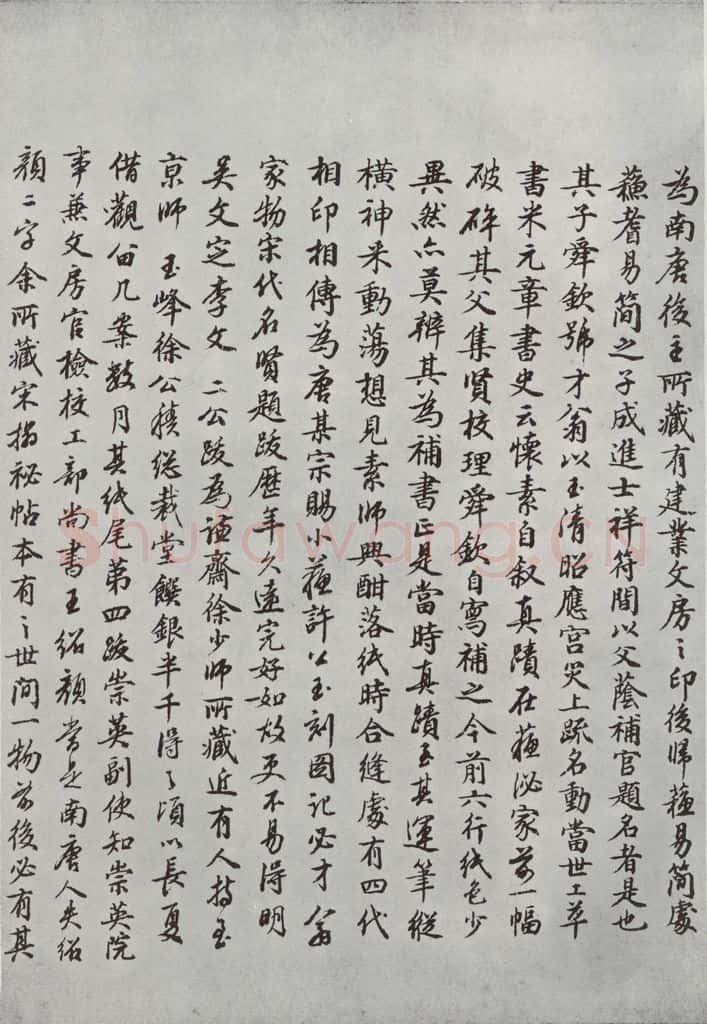 為南唐後主所藏有建業文房之印後歸蘓易簡處
蘓耆易簡之子成進士祥符間以父蔭補官題名者是也
其子舜欽號才翁以玉清昭應宮災上疏名動當世工草
書米元章書史云懷素自叙真蹟在蘓泌家前一幅
破碎其父集賢校理舜欽自寫補之今前六行紙色少
異然亦莫辨其為補書正是當時真蹟至其運筆縱
橫神采動蕩想見素師興酣落紙時合縫處有四代
相印相傳為唐某宗賜小蘓許公玉刻圖記必才翁
家物宋代名賢題跋歷年久遠完好如故更不易得明
吳文定李文 二公跋為謙齋徐少師所藏近有人持至
京師 玉峰徐公積總裁堂饌銀半千得之頃以長夏
借觀留几案數月其紙尾第四跋崇英副使知崇英院
事兼文房官檢校工部尚書王紹顏當是南唐人失紹
顏二字余所藏宋搨祕帖本有之世間一物前後必有其
Shufawang.CN